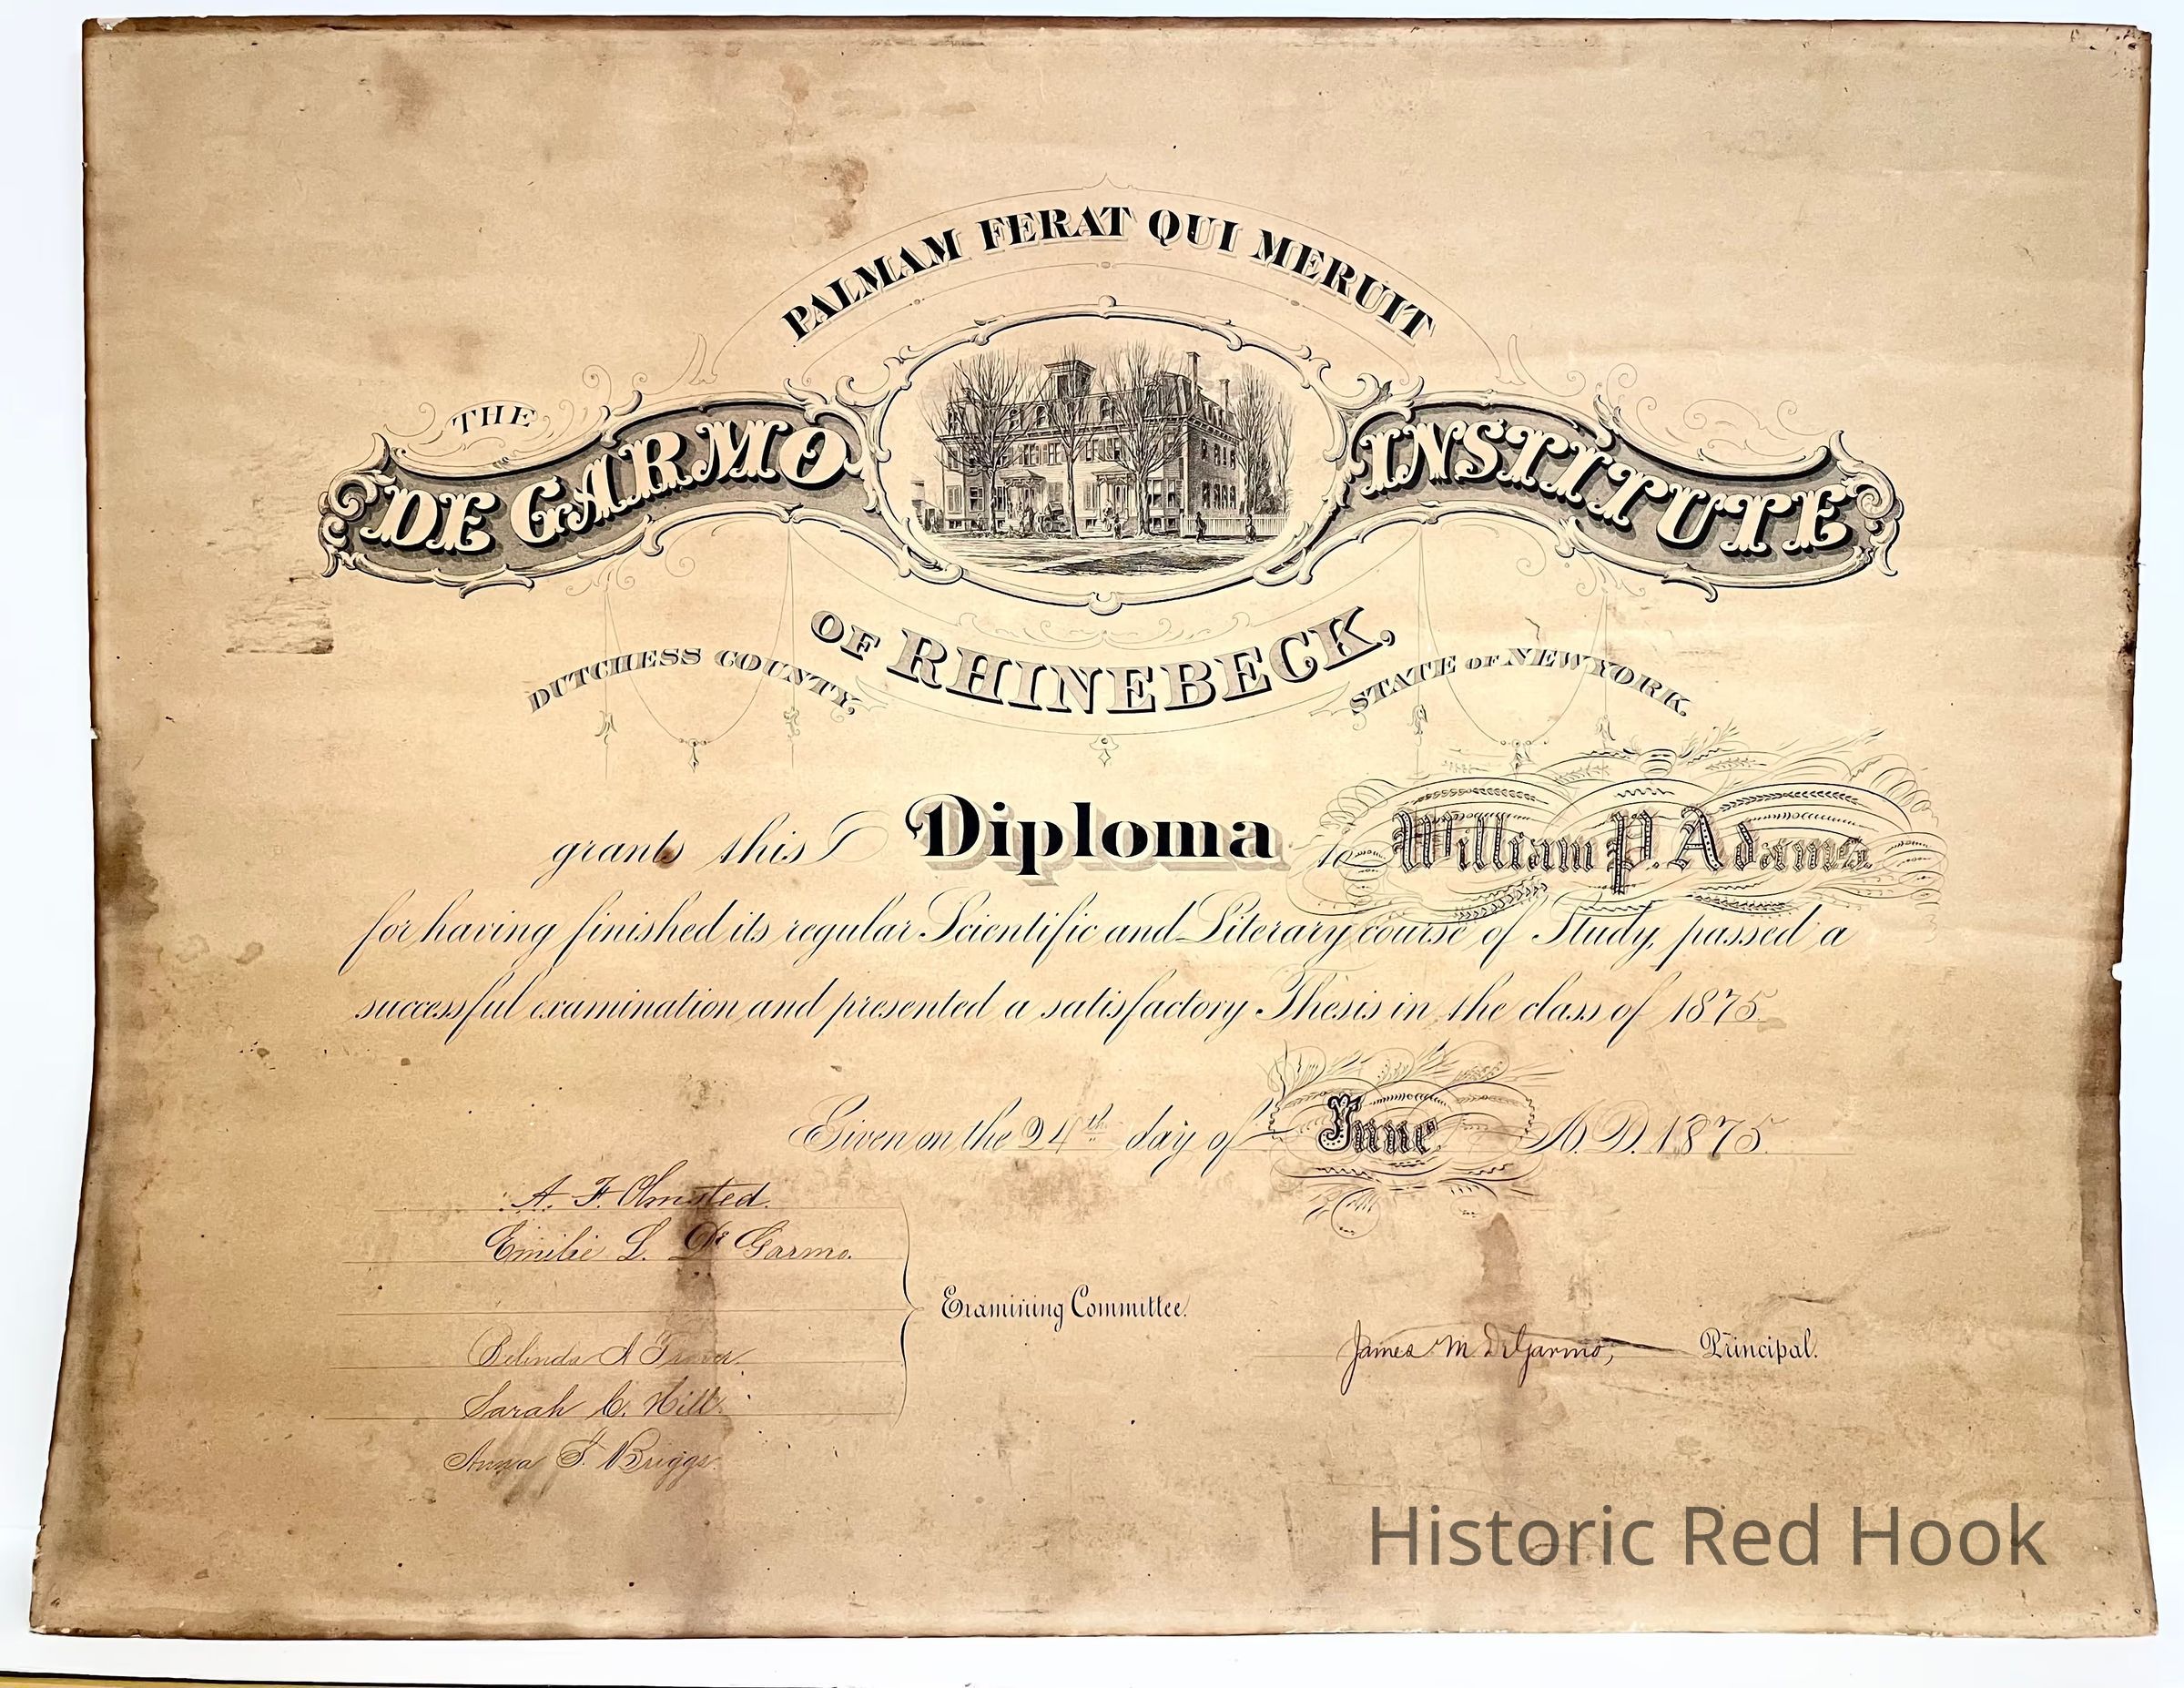 PALMAM FERAT QUI MERUIT
THE
DE GARMO INSTITUTE
OF RHINEBECK,
DUTCHESS COUNTY, STATE OF NEW YORK.
grants this Diploma to William P. Adams
for having finished its regular Scientific and Literary course of Study, passed a
successful examination and presented a satisfactory Thesis in the class of 1875
Given on the 24th day of June A.D. 1875.
A. F. Olmsted.
Emilie L. De Garmo.
Examining Committee.
Belinda A
James M. DeGarmo, Principal.
Sarah C. Hill.
Anna T. Briggs.
Historic Red Hook